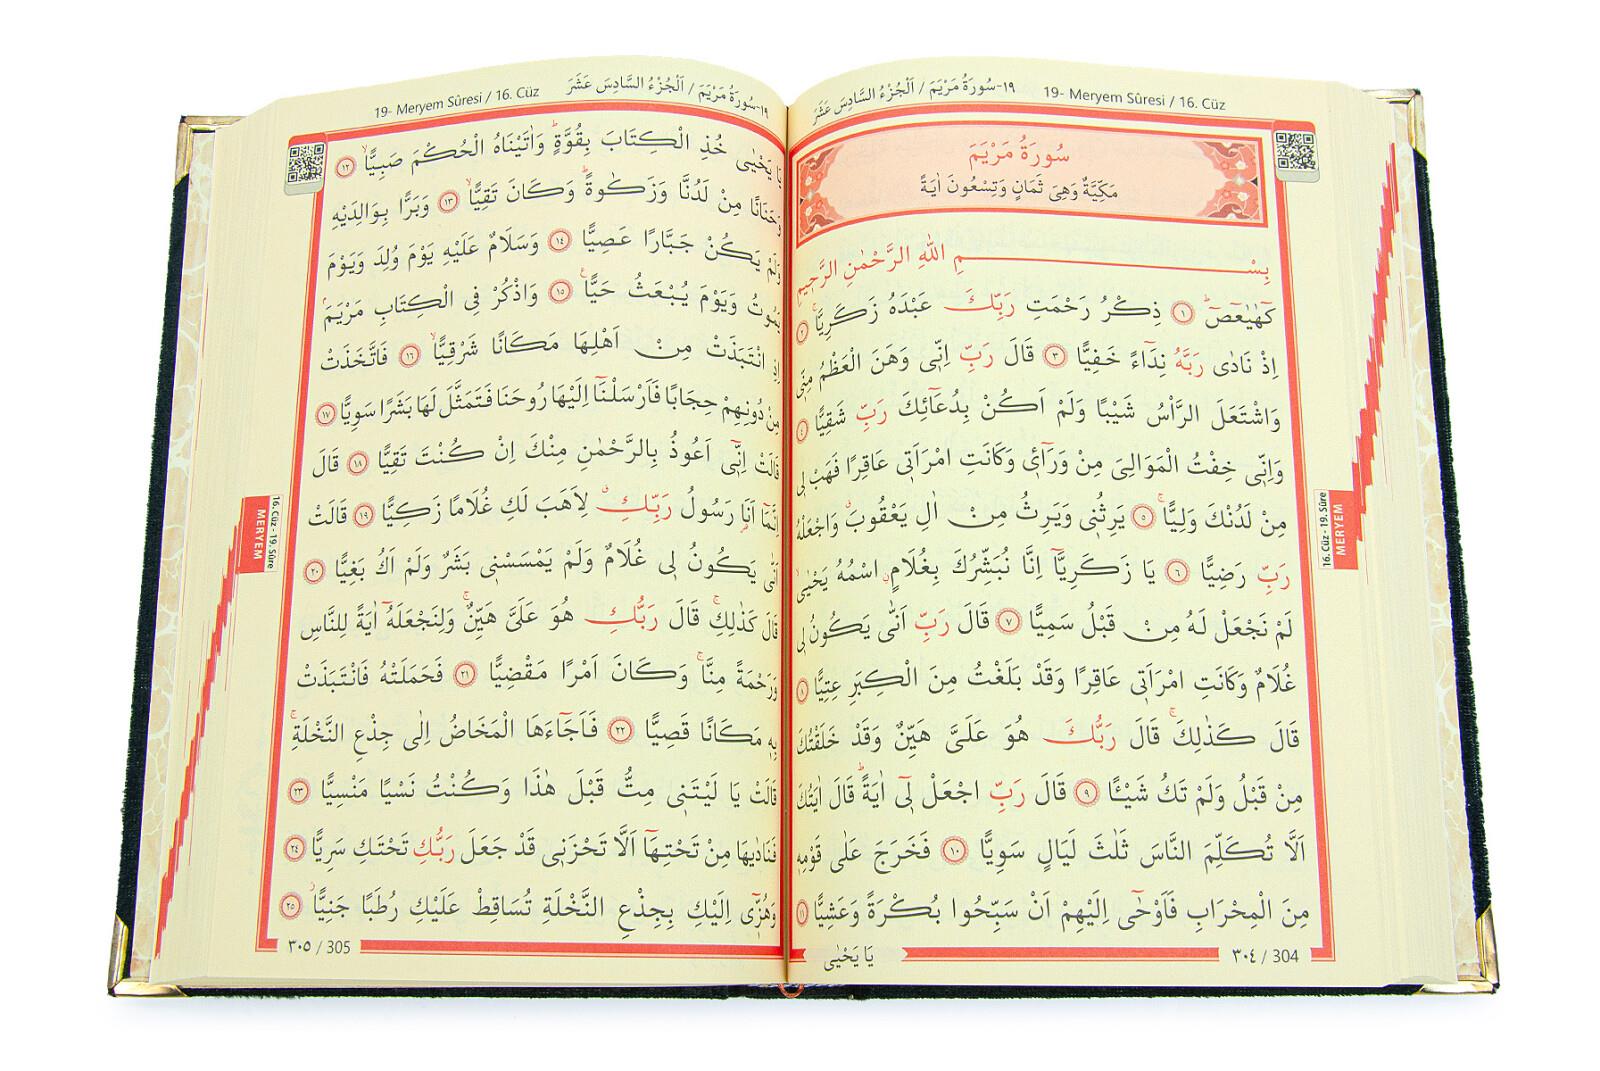 ١٩-سُورَةُ مَرْيَمَ / اَلْجُزْءُ السَّادِسَ عَشَرَ 19- Meryem Sûresi / 16. Cüz
سُورَةُ مَرْيَمَ
مَكِّيَّةٌ وَهِيَ ثَمَانٍ وَتِسْعُونَ اٰيَةً
بِسْمِ اللّٰهِ الرَّحْمٰنِ الرَّحِيمِ
كٓهٰيٰعٓصٓ ۚ ﴿١﴾ ذِكْرُ رَحْمَتِ رَبِّكَ عَبْدَهُ زَكَرِيَّا ۚ ﴿٢﴾
اِذْ نَادٰى رَبَّهُ نِدَٓاءً خَفِيًّا ﴿٣﴾ قَالَ رَبِّ اِنّ۪ى وَهَنَ الْعَظْمُ مِنّ۪ى
وَاشْتَعَلَ الرَّاْسُ شَيْبًا وَلَمْ اَكُنْ بِدُعَٓائِكَ رَبِّ شَقِيًّا ﴿٤﴾
وَاِنّ۪ى خِفْتُ الْمَوَالِىَ مِنْ وَرَٓاء۪ى وَكَانَتِ امْرَاَت۪ى عَاقِرًا فَهَبْ ل۪ى
مِنْ لَدُنْكَ وَلِيًّا ۙ ﴿٥﴾ يَرِثُن۪ى وَيَرِثُ مِنْ اٰلِ يَعْقُوبَ وَاجْعَلْهُ
رَبِّ رَضِيًّا ﴿٦﴾ يَا زَكَرِيَّٓا اِنَّا نُبَشِّرُكَ بِغُلَامٍۨ اسْمُهُ يَحْيٰىۙ
لَمْ نَجْعَلْ لَهُ مِنْ قَبْلُ سَمِيًّا ﴿٧﴾ قَالَ رَبِّ اَنّٰى يَكُونُ ل۪ى
غُلَامٌ وَكَانَتِ امْرَاَت۪ى عَاقِرًا وَقَدْ بَلَغْتُ مِنَ الْكِبَرِ عِتِيًّا ﴿٨﴾
قَالَ كَذٰلِكَۚ قَالَ رَبُّكَ هُوَ عَلَىَّ هَيِّنٌ وَقَدْ خَلَقْتُكَ
مِنْ قَبْلُ وَلَمْ تَكُ شَيْـًٔا ﴿٩﴾ قَالَ رَبِّ اجْعَلْ ل۪ٓى اٰيَةًۜ قَالَ اٰيَتُكَ
اَلَّا تُكَلِّمَ النَّاسَ ثَلٰثَ لَيَالٍ سَوِيًّا ﴿١٠﴾ فَخَرَجَ عَلٰى قَوْمِه۪
مِنَ الْمِحْرَابِ فَاَوْحٰٓى اِلَيْهِمْ اَنْ سَبِّحُوا بُكْرَةً وَعَشِيًّا ﴿١١﴾
يَا يَحْيٰى
٣٠٤ / 304
16. Cüz - 19. Sûre
MERYEM
19- Meryem Sûresi / 16. Cüz ١٩-سُورَةُ مَرْيَمَ / اَلْجُزْءُ السَّادِسَ عَشَرَ
يَا يَحْيٰى خُذِ الْكِتَابَ بِقُوَّةٍۜ وَاٰتَيْنَاهُ الْحُكْمَ صَبِيًّاۙ ﴿١٢﴾
وَحَنَانًا مِنْ لَدُنَّا وَزَكٰوةًۜ وَكَانَ تَقِيًّاۙ ﴿١٣﴾ وَبَرًّا بِوَالِدَيْهِ
وَلَمْ يَكُنْ جَبَّارًا عَصِيًّا ﴿١٤﴾ وَسَلَامٌ عَلَيْهِ يَوْمَ وُلِدَ وَيَوْمَ
يَمُوتُ وَيَوْمَ يُبْعَثُ حَيًّا۟ ﴿١٥﴾ وَاذْكُرْ فِى الْكِتَابِ مَرْيَمَۢ
اِذِ انْتَبَذَتْ مِنْ اَهْلِهَا مَكَانًا شَرْقِيًّاۙ ﴿١٦﴾ فَاتَّخَذَتْ
مِنْ دُونِهِمْ حِجَابًا فَاَرْسَلْنَٓا اِلَيْهَا رُوحَنَا فَتَمَثَّلَ لَهَا بَشَرًا سَوِيًّا ﴿١٧﴾
قَالَتْ اِنّ۪ٓى اَعُوذُ بِالرَّحْمٰنِ مِنْكَ اِنْ كُنْتَ تَقِيًّا ﴿١٨﴾ قَالَ
اِنَّمَٓا اَنَا۬ رَسُولُ رَبِّكِۗ لِاَهَبَ لَكِ غُلَامًا زَكِيًّا ﴿١٩﴾ قَالَتْ
اَنّٰى يَكُونُ ل۪ى غُلَامٌ وَلَمْ يَمْسَسْن۪ى بَشَرٌ وَلَمْ اَكُ بَغِيًّا ﴿٢٠﴾
قَالَ كَذٰلِكِۚ قَالَ رَبُّكِ هُوَ عَلَىَّ هَيِّنٌۚ وَلِنَجْعَلَهُٓ اٰيَةً لِلنَّاسِ
وَرَحْمَةً مِنَّاۚ وَكَانَ اَمْرًا مَقْضِيًّا ﴿٢١﴾ فَحَمَلَتْهُ فَانْتَبَذَتْ
بِه۪ مَكَانًا قَصِيًّا ﴿٢٢﴾ فَاَجَٓاءَهَا الْمَخَاضُ اِلٰى جِذْعِ النَّخْلَةِۚ
قَالَتْ يَا لَيْتَن۪ى مِتُّ قَبْلَ هٰذَا وَكُنْتُ نَسْيًا مَنْسِيًّا ﴿٢٣﴾
فَنَادٰيهَا مِنْ تَحْتِهَٓا اَلَّا تَحْزَن۪ى قَدْ جَعَلَ رَبُّكِ تَحْتَكِ سَرِيًّا ﴿٢٤﴾
وَهُزّ۪ٓى اِلَيْكِ بِجِذْعِ النَّخْلَةِ تُسَاقِطْ عَلَيْكِ رُطَبًا جَنِيًّاۘ ﴿٢٥﴾
٣٠٥ / 305
16. Cüz - 19. Sûre
MERYEM